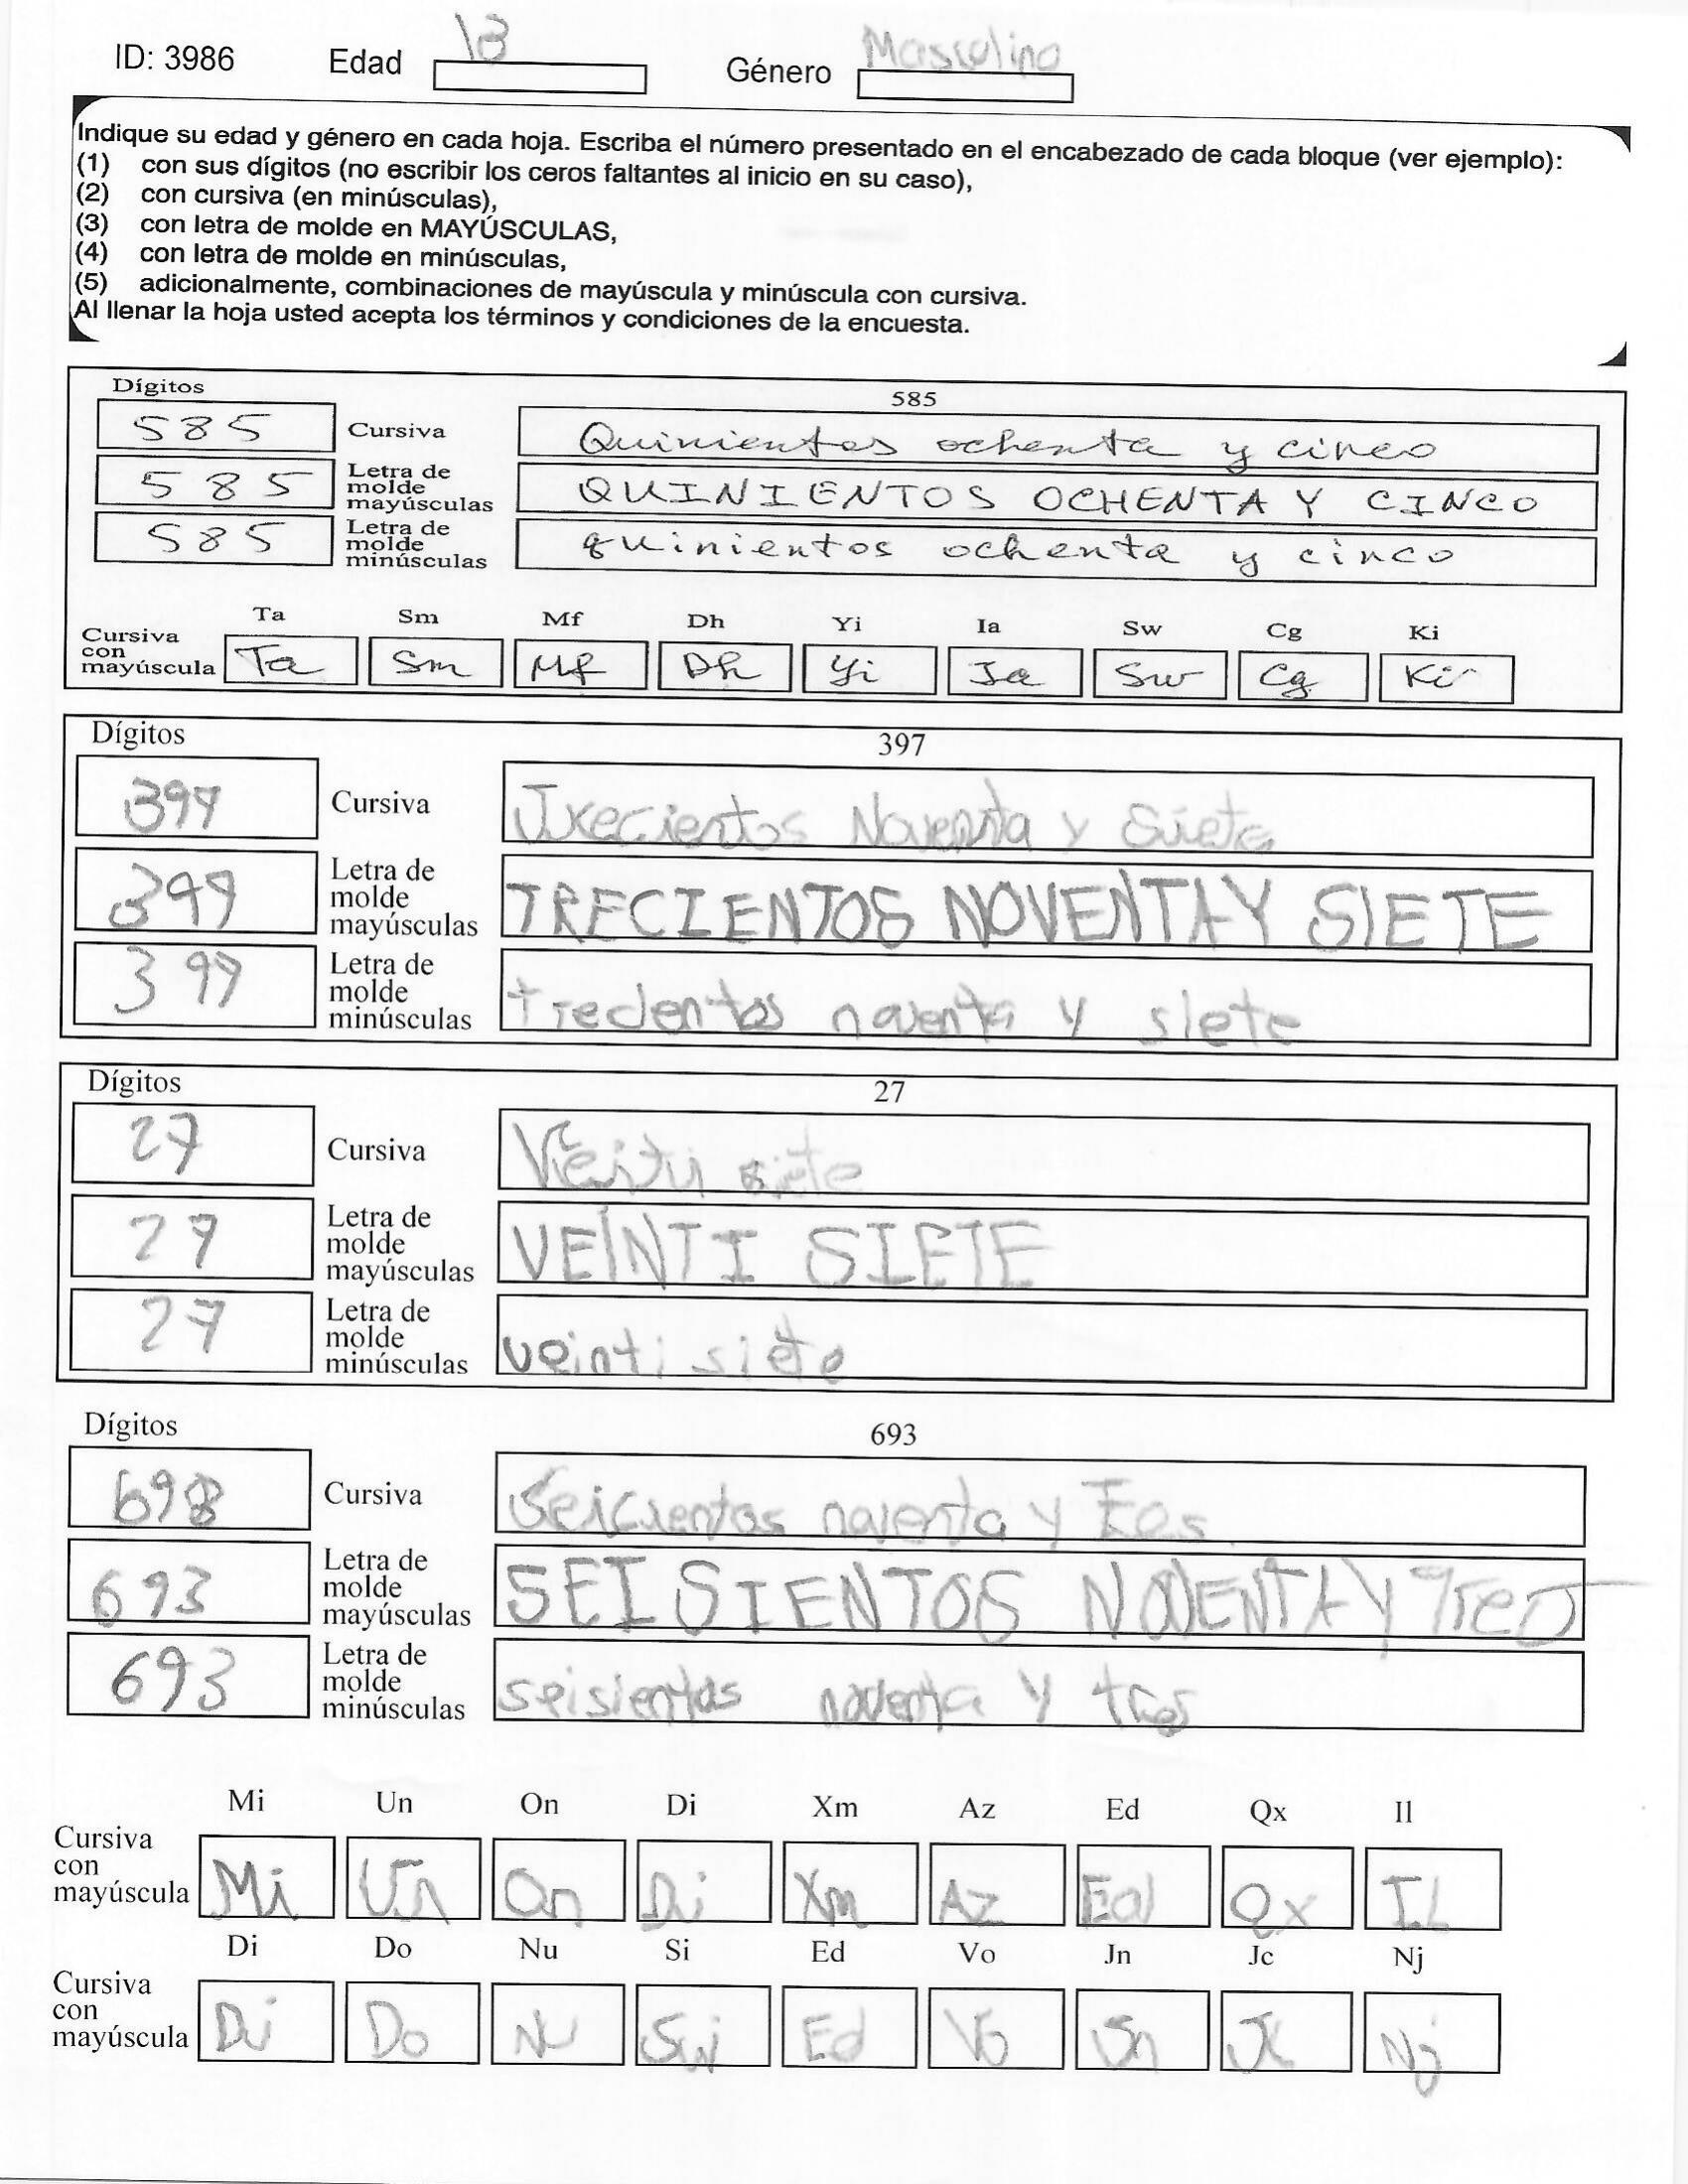 ID: 3986 Edad 13 Género Masculino
Indique su edad y género en cada hoja. Escriba el número presentado en el encabezado de cada bloque (ver ejemplo):
(1) con sus dígitos (no escribir los ceros faltantes al inicio en su caso),
(2) con cursiva (en minúsculas),
(3) con letra de molde en MAYÚSCULAS,
(4) con letra de molde en minúsculas,
(5) adicionalmente, combinaciones de mayúscula y minúscula con cursiva.
Al llenar la hoja usted acepta los términos y condiciones de la encuesta.
Dígitos 585
585 Cursiva Quinientos ochenta y cinco
585 Letra de molde mayúsculas QUINIENTOS OCHENTA Y CINCO
585 Letra de molde minúsculas quinientos ochenta y cinco
Ta Sm Mf Dh Yi Ia Sw Cg Ki
Cursiva con mayúscula Ta Sm Mf Dh Yi Ia Sw Cg Ki
Dígitos 397
397 Cursiva Trecientos Noventa y Siete
397 Letra de molde mayúsculas TRECIENTOS NOVENTA Y SIETE
397 Letra de molde minúsculas trecientos noventa y siete
Dígitos 27
27 Cursiva siete
27 Letra de molde mayúsculas VEINTI SIETE
27 Letra de molde minúsculas veinti siete
Dígitos 693
698 Cursiva Seicientos noventa y
693 Letra de molde mayúsculas SEISIENTOS NOVENTA Y Tres
693 Letra de molde minúsculas seisientos noventa y tres
Mi Un On Di Xm Az Ed Qx Il
Cursiva con mayúscula Mi Un On Di Xm Az Ed Qx IL
Di Do Nu Si Ed Vo Jn Jc Nj
Cursiva con mayúscula Di Do Nu Si Ed Vo Jn Jc Nj